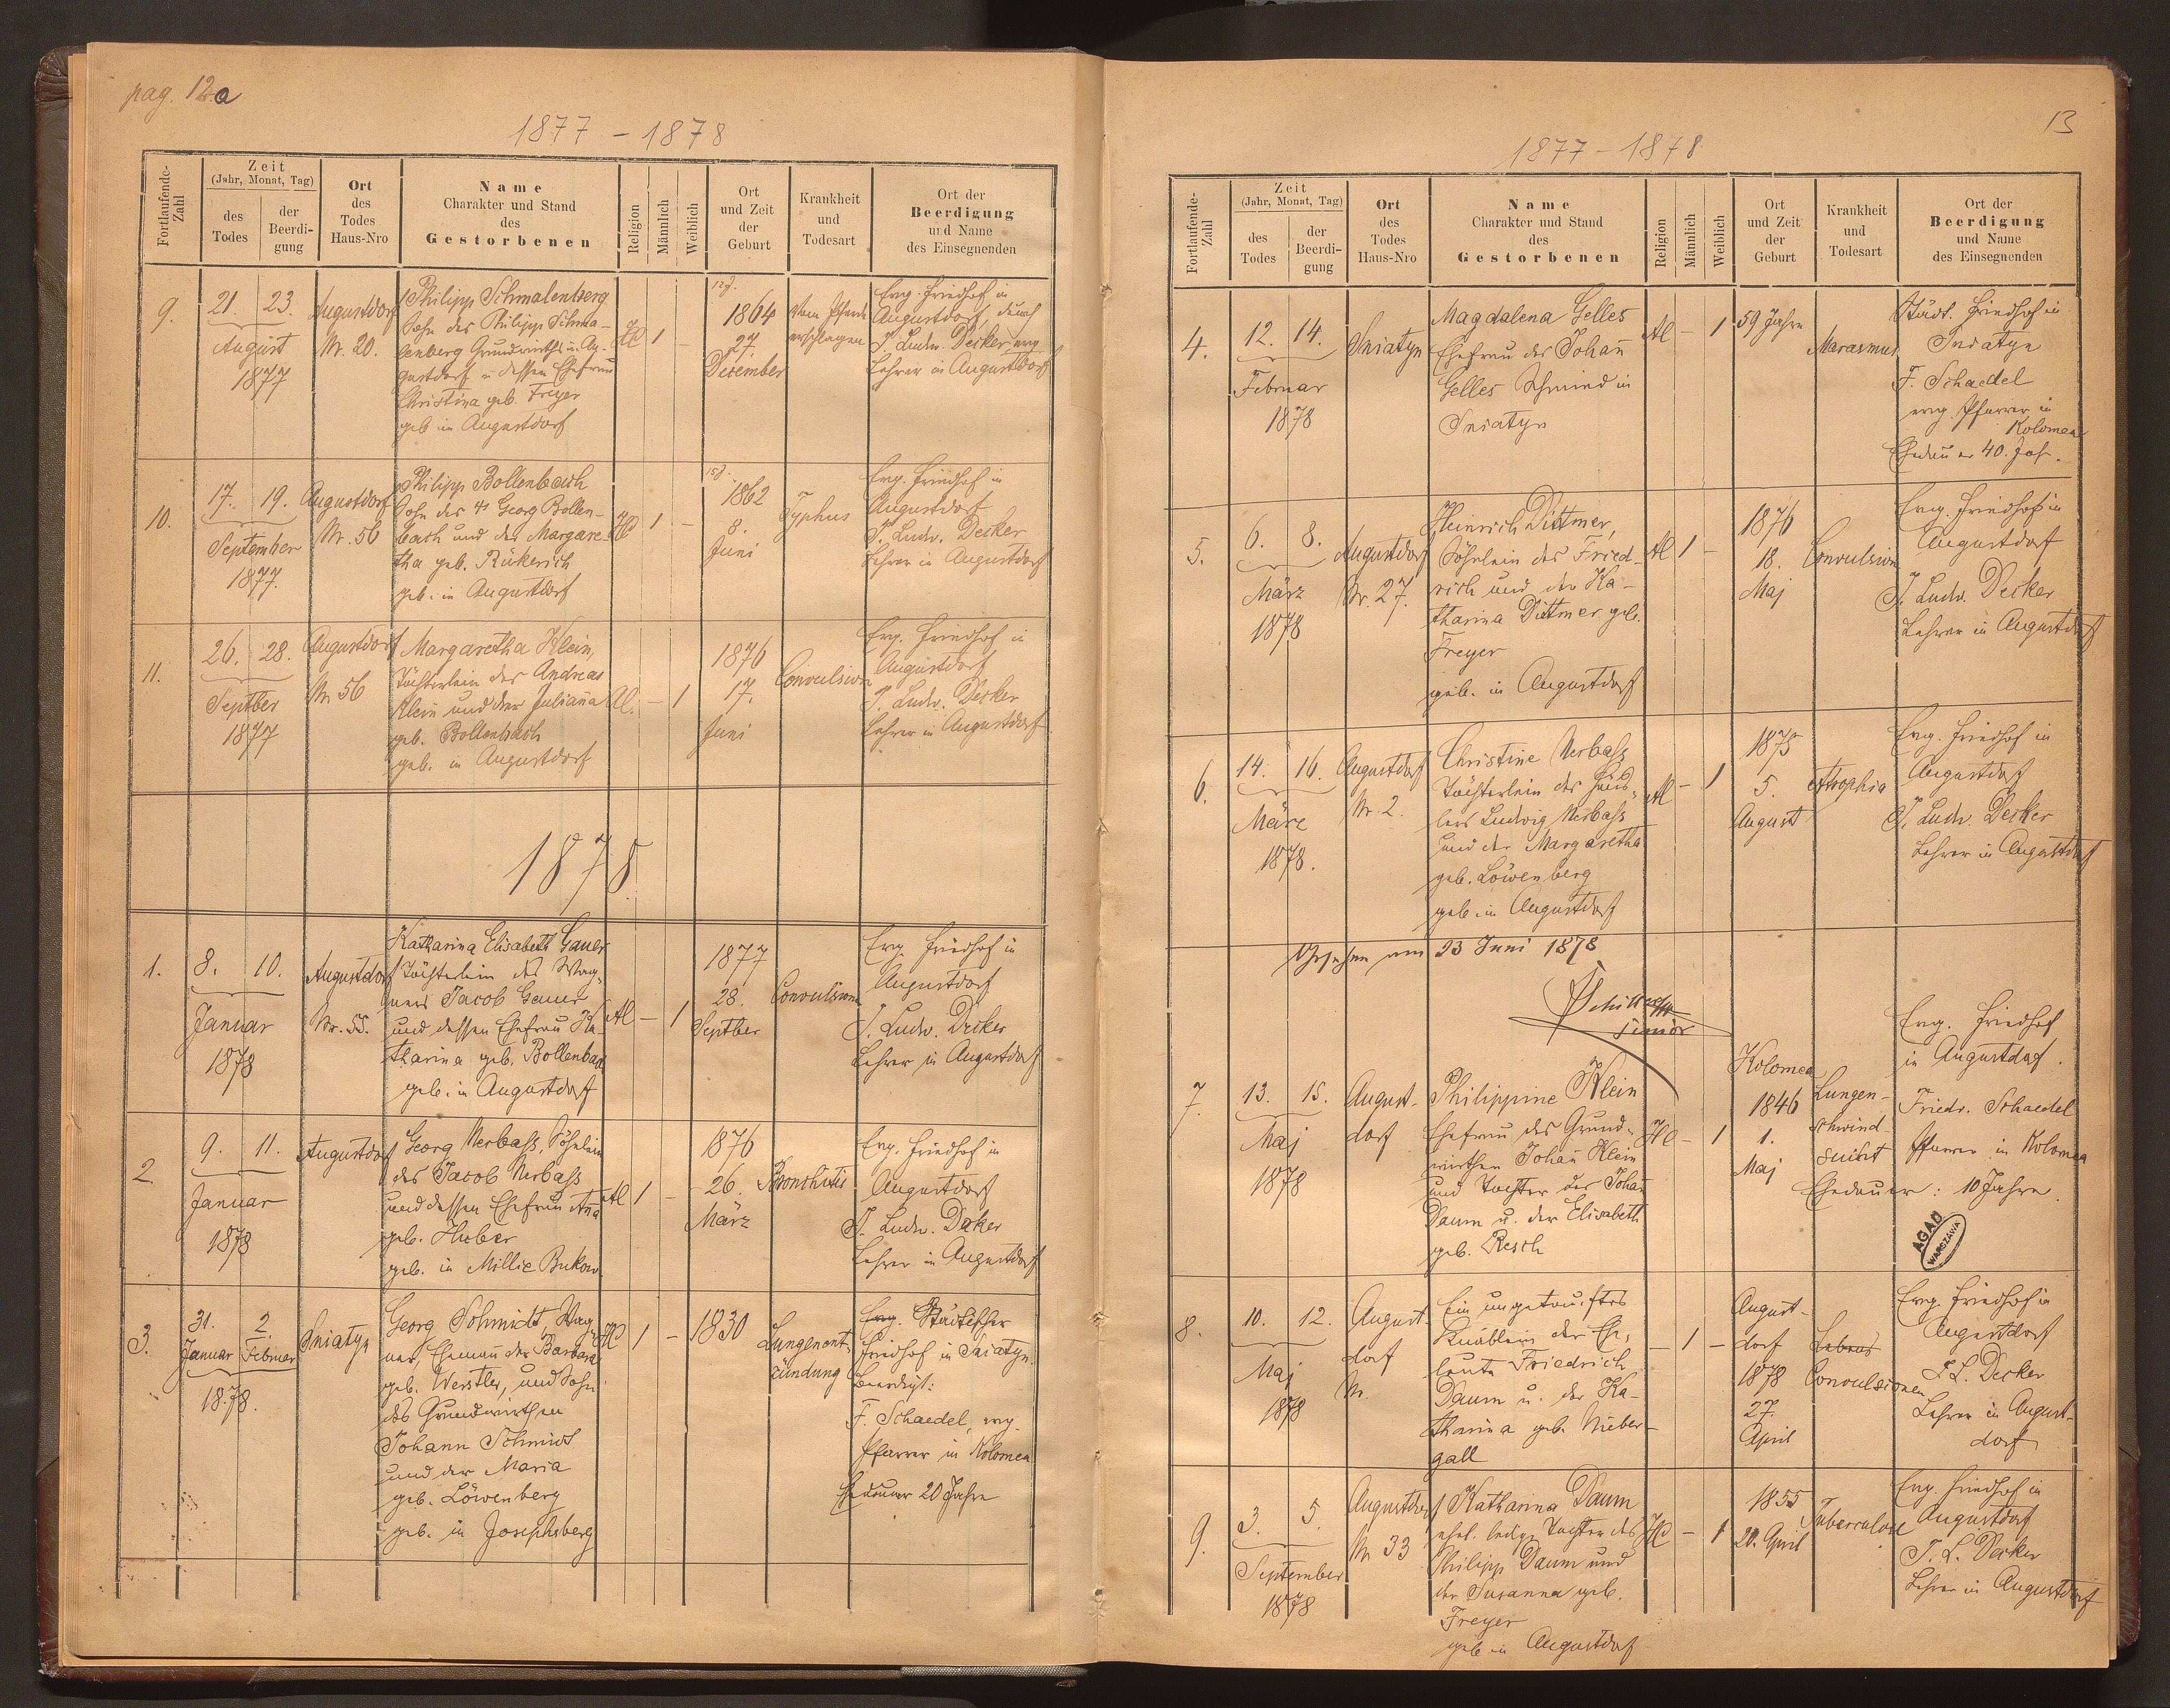 pag. 12a
1877 - 1878
Fortlaufende-Zahl
Zeit
(Jahr, Monat, Tag)
des Todes
der Beerdi-gung
Ort des Todes Haus-Nro
Name
Charakter und Stand
des
Gestorbenen
Religion
Männlich
Weiblich
Ort und Zeit der Geburt
Krankheit und Todesart
Ort der
Beerdigung
und Name
des Einsegnenden
9.
21. 23.
August
1877
Augustdorf
Nr. 20.
Philipp Schmalenberg
Sohn des Philipp Schma-
lenberg Grundwirths in Au-
gustdorf u dessen Ehefrau
Christina geb. Freyer
geb in Augustdorf
HC
1
-
12J.
1864
27.
December
Vom Pferde
erschlagen
Evg. Friedhof in
Augustdorf, durch
J. Ludw. Decker evg
Lehrer in Augustdorf
10.
17. 19.
September
1877.
Augustdorf
Nr. 56
Philipp Bollenbach
Sohn des Georg Bollen-
bach und der Margare-
tha geb. Rükerich
geb. in Augustdorf
HC
1
-
15J.
1862
8.
Juni
Typhus
Evg. Friedhof in
Augustdorf
J. Ludw. Decker
Lehrer in Augustdorf
11.
26. 28.
Septber
1877
Augustdorf
Nr. 56
Margaretha Klein,
Töchterlein des Andreas
Klein und der Juliana
geb. Bollenbach
geb. in Augustdorf
Al.
-
1
1876
17.
Juni
Convulsion
Evg. Friedhof in
Augustdorf
J. Ludw. Decker
Lehrer in Augustdorf
1878
1.
8. 10.
Januar
1878
Augustdorf
Nr. 55.
Katharina Elisabeth Gauer
Töchterlein des Wag-
ners Jacob Gauer
und dessen Ehefrau Ka-
tharina geb. Bollenbach
geb. in Augustdorf
Al
-
1
1877
28.
Septber
Convulsion
Evg. Friedhof in
Augustdorf
J. Ludw. Decker
Lehrer in Augustdorf
2
9. 11.
Januar
1878
Augustdorf
Georg Nerbaß, Söhnlein
des Jacob Nerbaß
und dessen Ehefrau Ana
geb. Huber
geb. in Millie Bukow.
Al
1
-
1876
26.
März
Bronchitis
Evg. Friedhof in
Augustdorf
J. Ludw. Decker
Lehrer in Augustdorf
3.
31. 2.
Januar Februar
1878.
Sniatyn
Georg Schmidt, Wag-
ner, Ehemañ der Barbara
geb. Werstler, und Sohn
des Grundwirthen
Johann Schmidt
und der Maria
geb. Löwenberg
geb. in Josephsberg
HC
1
-
1830
Lungenent-
zündung
Evg. Städtischer
Friedhof in Sniatyn
beerdigt:
F. Schaedel, evg.
Pfarrer in Kolomea
Ehedauer 20 Jahre
13
1877 - 1878
Fortlaufende-Zahl
Zeit
(Jahr, Monat, Tag)
des Todes
der Beerdi-gung
Ort des Todes Haus-Nro
Name
Charakter und Stand
des
Gestorbenen
Religion
Männlich
Weiblich
Ort und Zeit der Geburt
Krankheit und Todesart
Ort der
Beerdigung
und Name
des Einsegnenden
4.
12. 14.
Februar
1878
Sniatyn
Magdalena Gelles
Ehefrau des Johañ
Gelles Schmied in
Sniatyn
Al
-
1
59 Jahre
Marasmus
Städt. Friedhof in
Sniatyn
F. Schaedel
evg. Pfarrer in
Kolomea
Ehedauer 40. Jah.
5.
6. 8.
März
1878
Augustdorf
Nr. 27.
Heinrich Dittmer,
Söhnlein des Fried-
rich und der Ka-
tharina Dittmer geb.
Freyer
geb. in Augustdorf
Al
1
-
1876
18.
Maj
Convulsion
Evg. Friedhof in
Augustdorf
J. Ludw. Decker
Lehrer in Augustdorf
6.
14. 16.
März
1878.
Augustdorf
Nr. 2.
Christine Nerbaß
Töchterlein des Häus-
lers Ludwig Nerbaß
und der Margaretha
geb. Löwenberg
geb. in Augustdorf
Al
-
1
1875
5.
August
Atrophia
Evg. Friedhof in
Augustdorf
J. Ludw. Decker
Lehrer in Augustdorf
Gesehen am 23 Juni 1878
Senior
7.
13. 15.
Maj
1878
August-
dorf
Philippine Klein
Ehefrau des Grund-
wirthen Johañ Klein
und Tochter des Johañ
Daum u. der Elisabeth
geb. Resch
HC
-
1
Kolomea
1846
1.
Maj
Lungen-
schwind
sucht
Evg. Friedhof
in Augustdorf.
Friedr. Schaedel
Pfarrer in Kolomea
Ehedauer: 10 Jahre.
AGAD
WARSZAWA
8.
10. 12.
Maj
1878
August-
dorf
Nr.
Ein ungetauftes
Knäblein der Ehe-
leute Friedrich
Daum u. der Ka-
tharina geb. Nieber-
gall
-
1
-
August-
dorf
1878
27.
April
Convulsionen
Evg. Friedhof in
Augustdorf
J. L. Decker
Lehrer in August-
dorf
9.
3. 5.
September
1878
Augustdorf
Nr 33
Katharina Daum
ehel. ledige Tochter des
Philipp Daum und
der Susanna geb.
Freyer
geb in Augustdorf
HC
-
1
1855
20. April
Tuberculose
Evg. Friedhof in
Augustdorf
J. L. Decker
Lehrer in Augustdorf